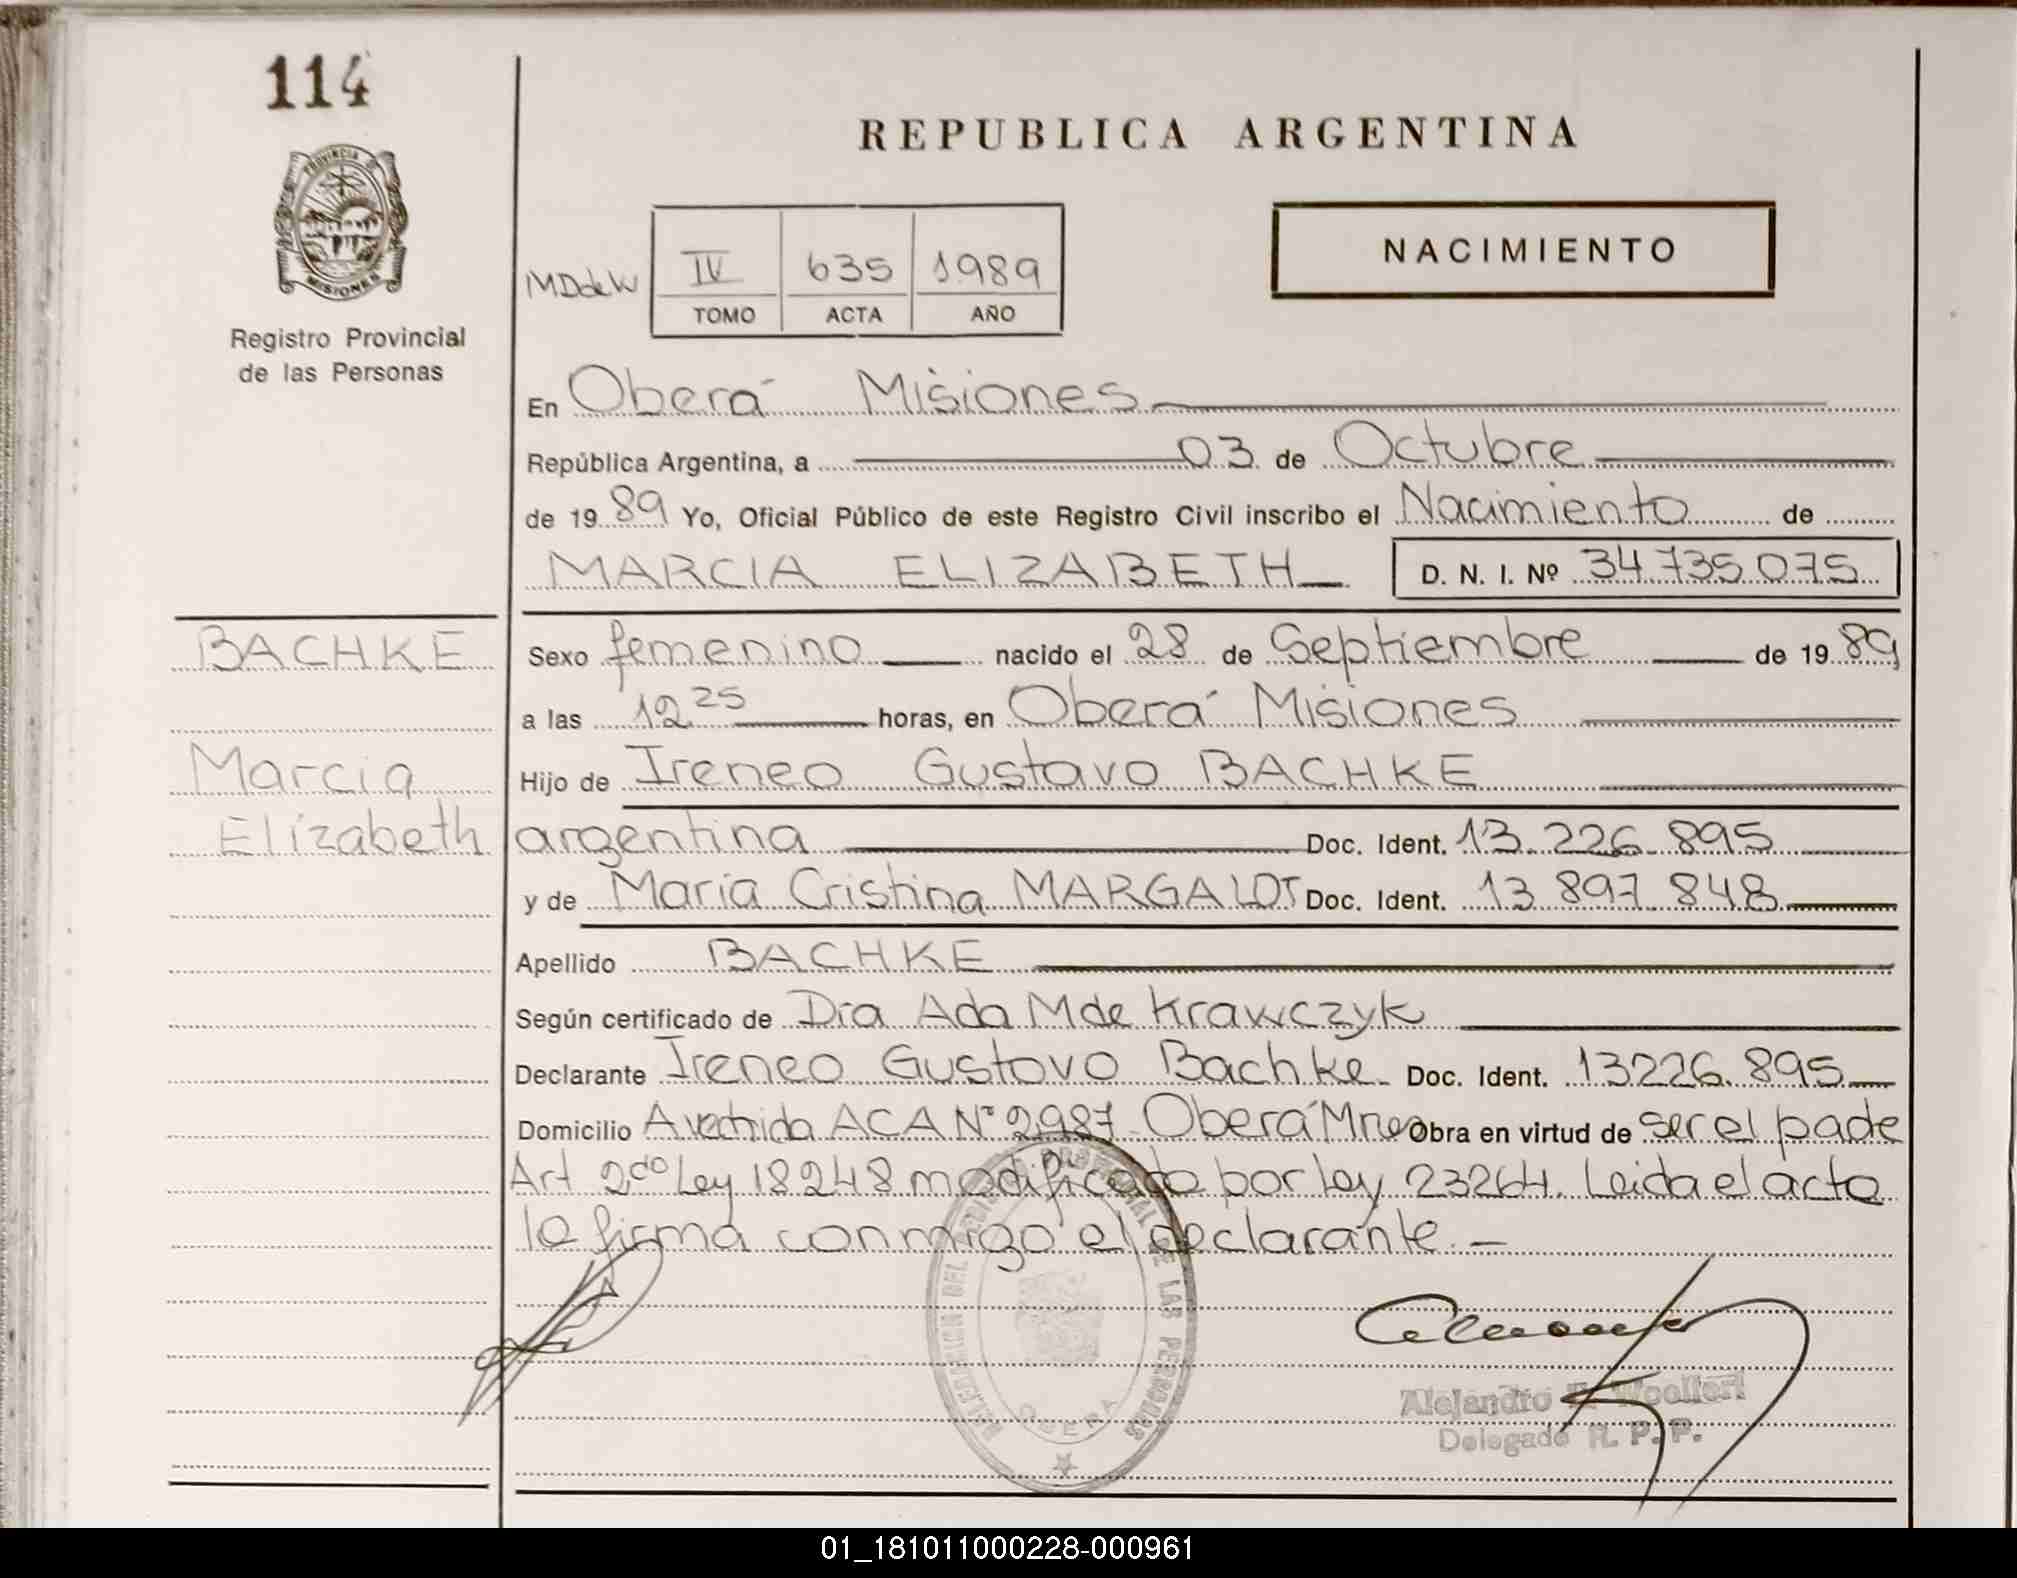 114
PROVINCIA D
MISIONES
Registro Provincial
de las Personas
REPUBLICA ARGENTINA
NACIMIENTO
MDdeW
IV 635 1989
TOMO ACTA AÑO
En Oberá Misiones
República Argentina, a 03 de Octubre
de 1989 Yo, Oficial Público de este Registro Civil inscribo el Nacimiento de
MARCIA ELIZABETH D. N. I. Nº 34 735 075
BACHKE
Marcia
Elizabeth
Sexo femenino nacido el 28 de Septiembre de 1989
a las 12 25 horas, en Oberá Misiones
Hijo de Ireneo Gustavo BACHKE
argentina Doc. Ident. 13.226.895
y de María Cristina MARGALOT Doc. Ident. 13 897 848
Apellido BACHKE
Según certificado de Dra Ada M de Krawczyk
Declarante Ireneo Gustavo Bachke Doc. Ident. 13226.895
Domicilio ACA Nº 2987 Oberá Obra en virtud de ser el padre
Art 2do Ley 18248 modificado por ley 23264. Leida el acta
la firma conmigo el declarante.-
DELEGACION DEL REGISTRO PROVINCIAL DE LAS PERSONAS
OBERA
Alejandro
Delegado R. P. P.
01_181011000228-000961